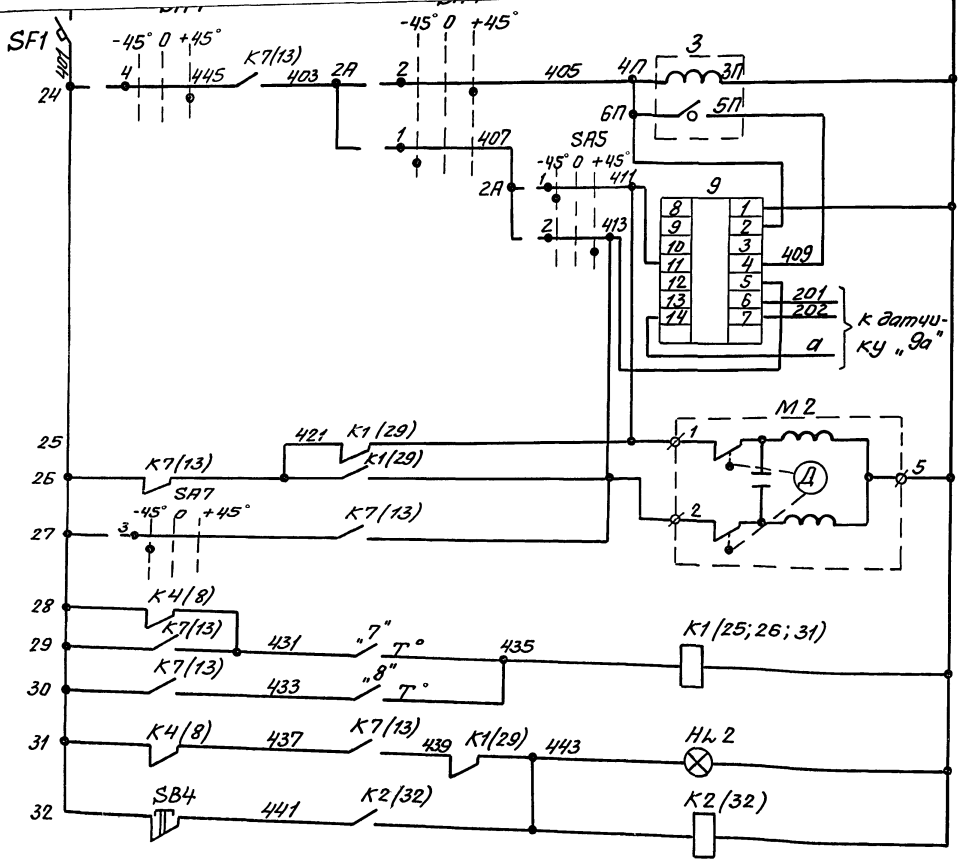 SF1
401
-45° 0 +45°
-45° 0 +45°
24
4
445
K7(13)
403
2А
2
405
4П
3
3П
6П
5П
1
407
SA5
-45° 0 +45°
2А
1
411
2
413
9
8 1
9 2
10 3
11 4
12 5
13 6
14 7
409
201
202
а
к датчи-
ку „9а"
25
421
K1(29)
M2
1
5
26
K7(13)
K1(29)
Д
SA7
-45° 0 +45°
2
27
3
K7(13)
28
K4(8)
29
K7(13)
431
„7"
T°
435
K1(25;26;31)
30
K7(13)
433
„8"
T°
31
K4(8)
437
K7(13)
439
K1(29)
443
HL2
32
SB4
441
K2(32)
K2(32)